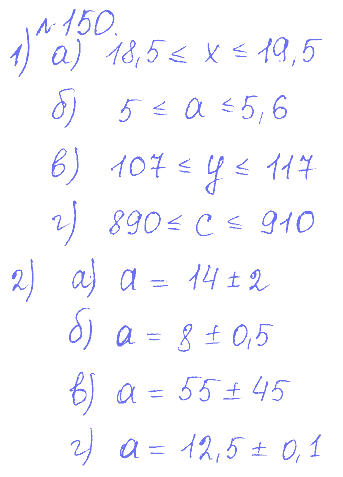 №150.
1) а) 18,5 ≤ x ≤ 19,5
б) 5 ≤ a ≤ 5,6
в) 107 ≤ y ≤ 117
г) 890 ≤ c ≤ 910
2) а) a = 14 ± 2
б) a = 8 ± 0,5
в) a = 55 ± 45
г) a = 12,5 ± 0,1